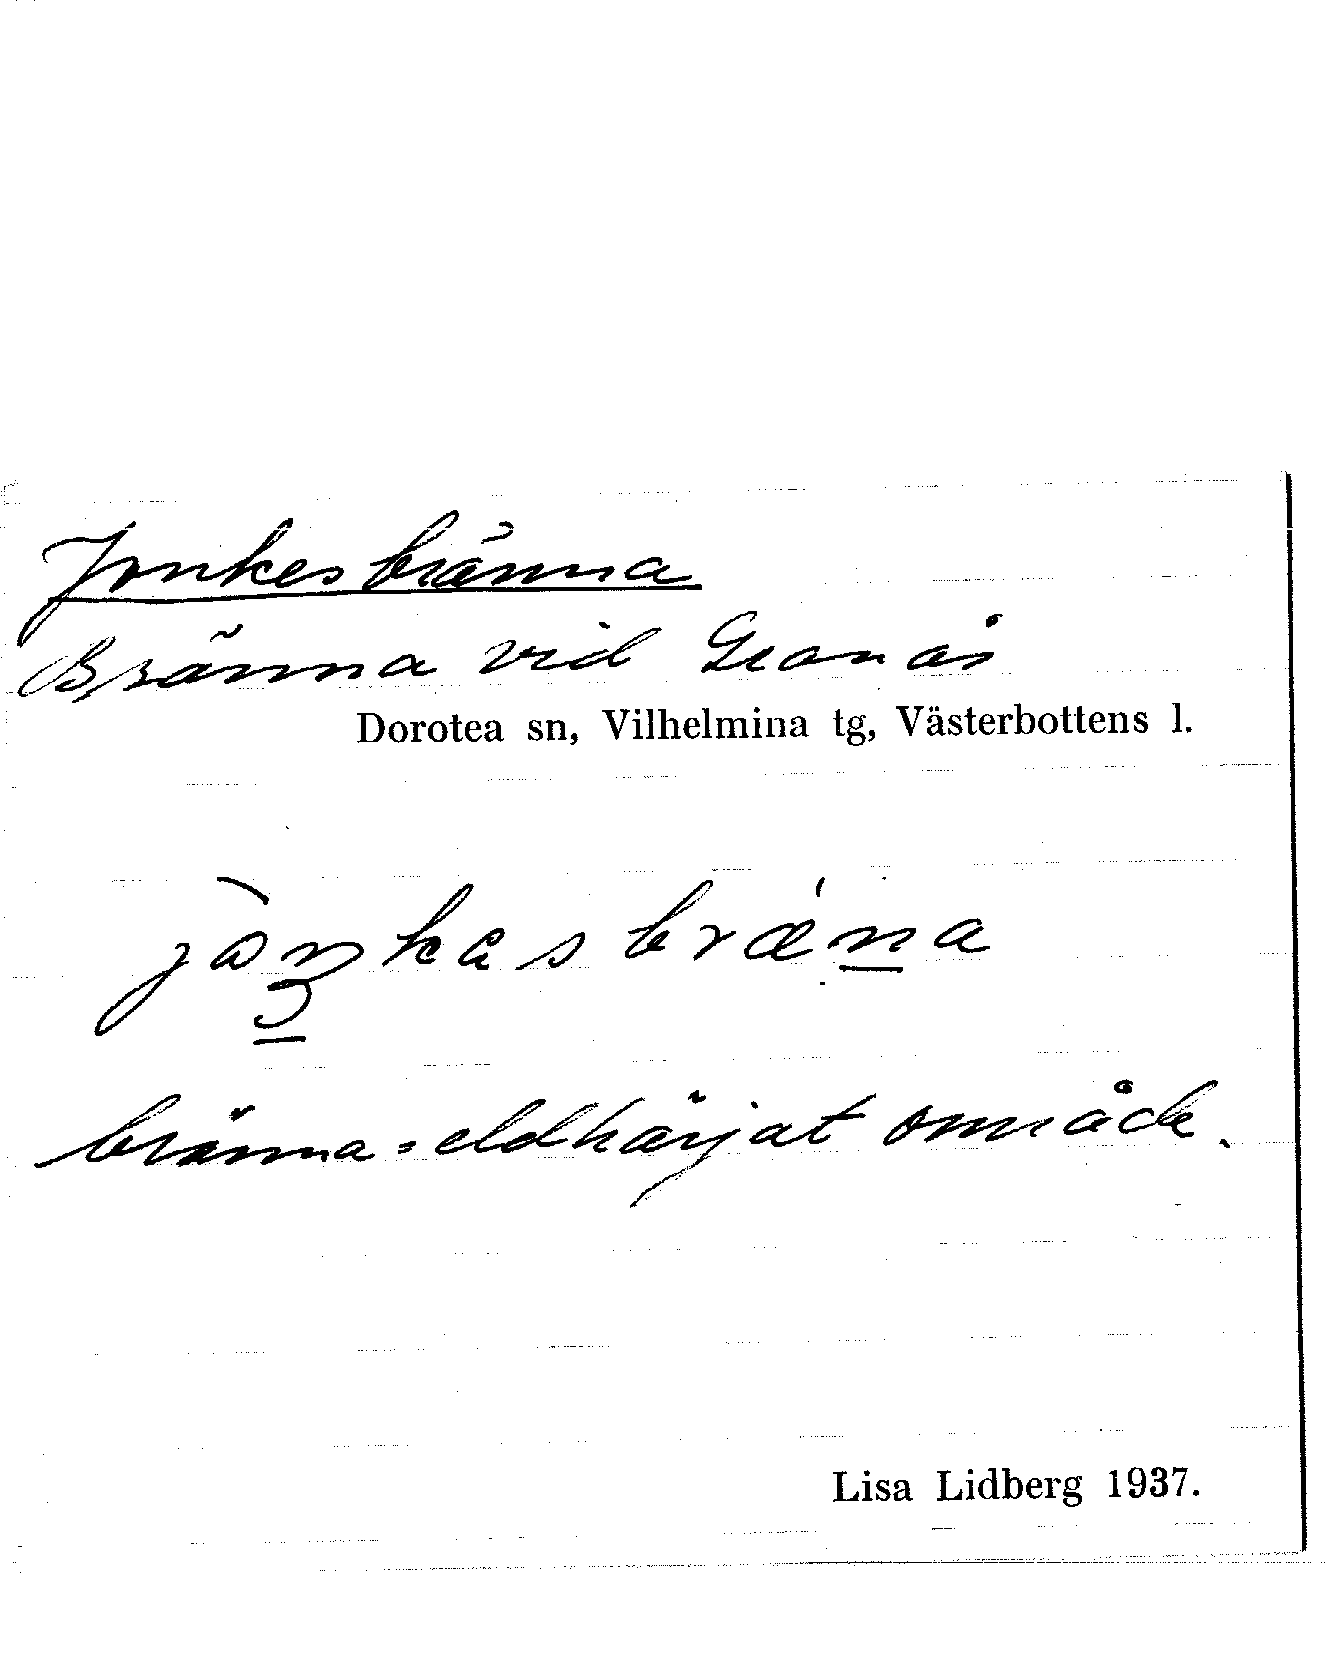 Jonkesbränna
Bränna vid Granås
Dorotea sn, Vilhelmina tg, Västerbottens l.
bränna = eldhärjat område.
Lisa Lidberg 1937.